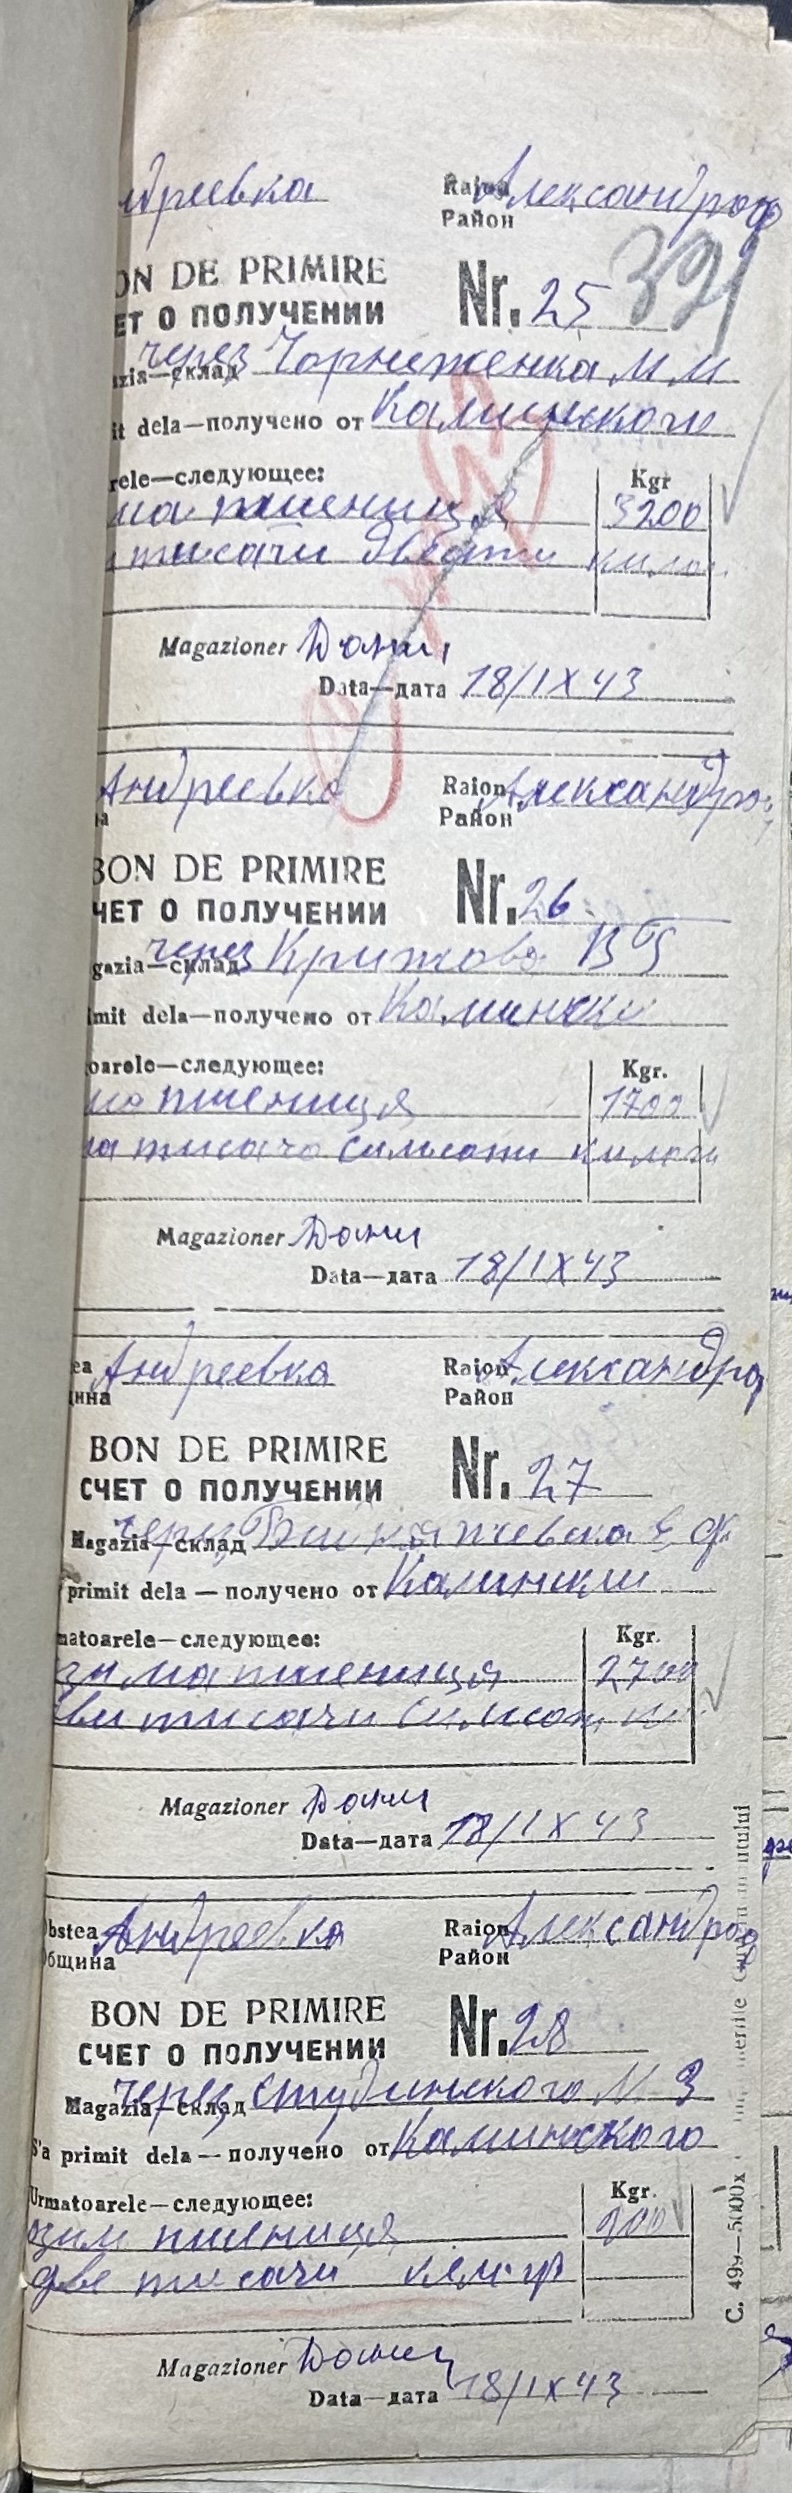 ндреевка Raion Александров
Район
ON DE PRIMIRE Nr. 25 321
ЕТ О ПОЛУЧЕНИИ
azia—склад через Чорниженка М И
it dela—получено от Калинского
rele—следующее: Kgr
ма пшениця 3200
тисячи двести килог
Magazioner
Data—дата 18/IX 43
Андреевка Raion Александров
на Район
BON DE PRIMIRE Nr. 26
ЧЕТ О ПОЛУЧЕНИИ
gazia—склад через
imit dela—получено от Калински
oarele—следующее: Kgr.
ма пшениця 1700
на тисяча симсот килог
Magazioner
Data—дата 18/IX 43
ea Андреевка Raion Александров
цина Район
BON DE PRIMIRE Nr. 27
СЧЕТ О ПОЛУЧЕНИИ
Magazia—склад через
primit dela—получено от Калински
matoarele—следующее: Kgr.
зима пшениця 2700
дви тисячи симсот
Magazioner
Data—дата 18/IX 43
Obstea Андреевка Raion Александров
Община Район
BON DE PRIMIRE Nr. 28
СЧЕТ О ПОЛУЧЕНИИ
Magazia—склад через Студинского
S'a primit dela—получено от Калинского
Urmatoarele—следующее: Kgr.
озим пшениця
две тисячи
Magazioner
Data—дата 18/IX 43
C. 499—5000x